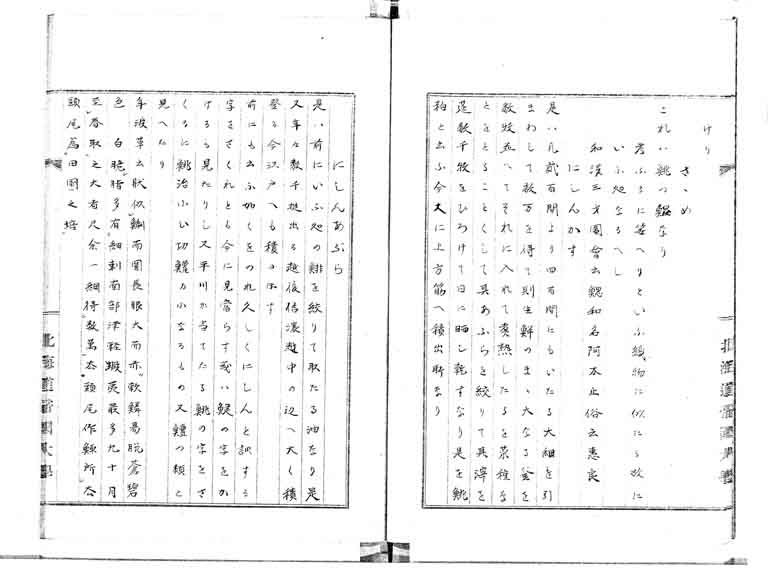 けり
きゝめ
これハ鯡の鰓なり
考ふるに笑へりといふ織物に似たる故に
いふ処なるへし
和漢三才圖會云鰓和名阿木止俗云惠良
にしんかす
是ハ凡貳百間より四百間にもいたる大網を引
まわして数万を得て則生鮮のまゝ大なる釜を
数校並へてそれに入れて煮熟したるを菜種な
とをとることくして其あふらを絞りて其滓を
莚数千牧をひろけて日に晒し乾すなり是を鯡
粕と云ふ今大に上方筋へ積出所なり
にしんあぶら
是ハ前にいふ処の鯡を絞りて取たる油なり是
又年々数千挺出る越後信濃越中の辺へ大く積
登る今江戸へも積のほす
前にも云ふ如くをのれ久しくにしんと訳する
字をさくれとも今に見当らす或ハ鯟の字をか
けるも見たりし又平川か当てたる鯡の字をさ
くるに鯡治小い切鱣カ小なるもの又鱣の類と
見へたり
年波草云状似鰯而圓長眼大而赤軟鱗易脱蒼碧
色 白脆脂多有細刺南部津軽蝦夷最多九十月
至春取之大者尺余一網得数萬去頭尾作鯑所去
頭尾為田圃之培
北海道帝國大學
北海道帝國大學